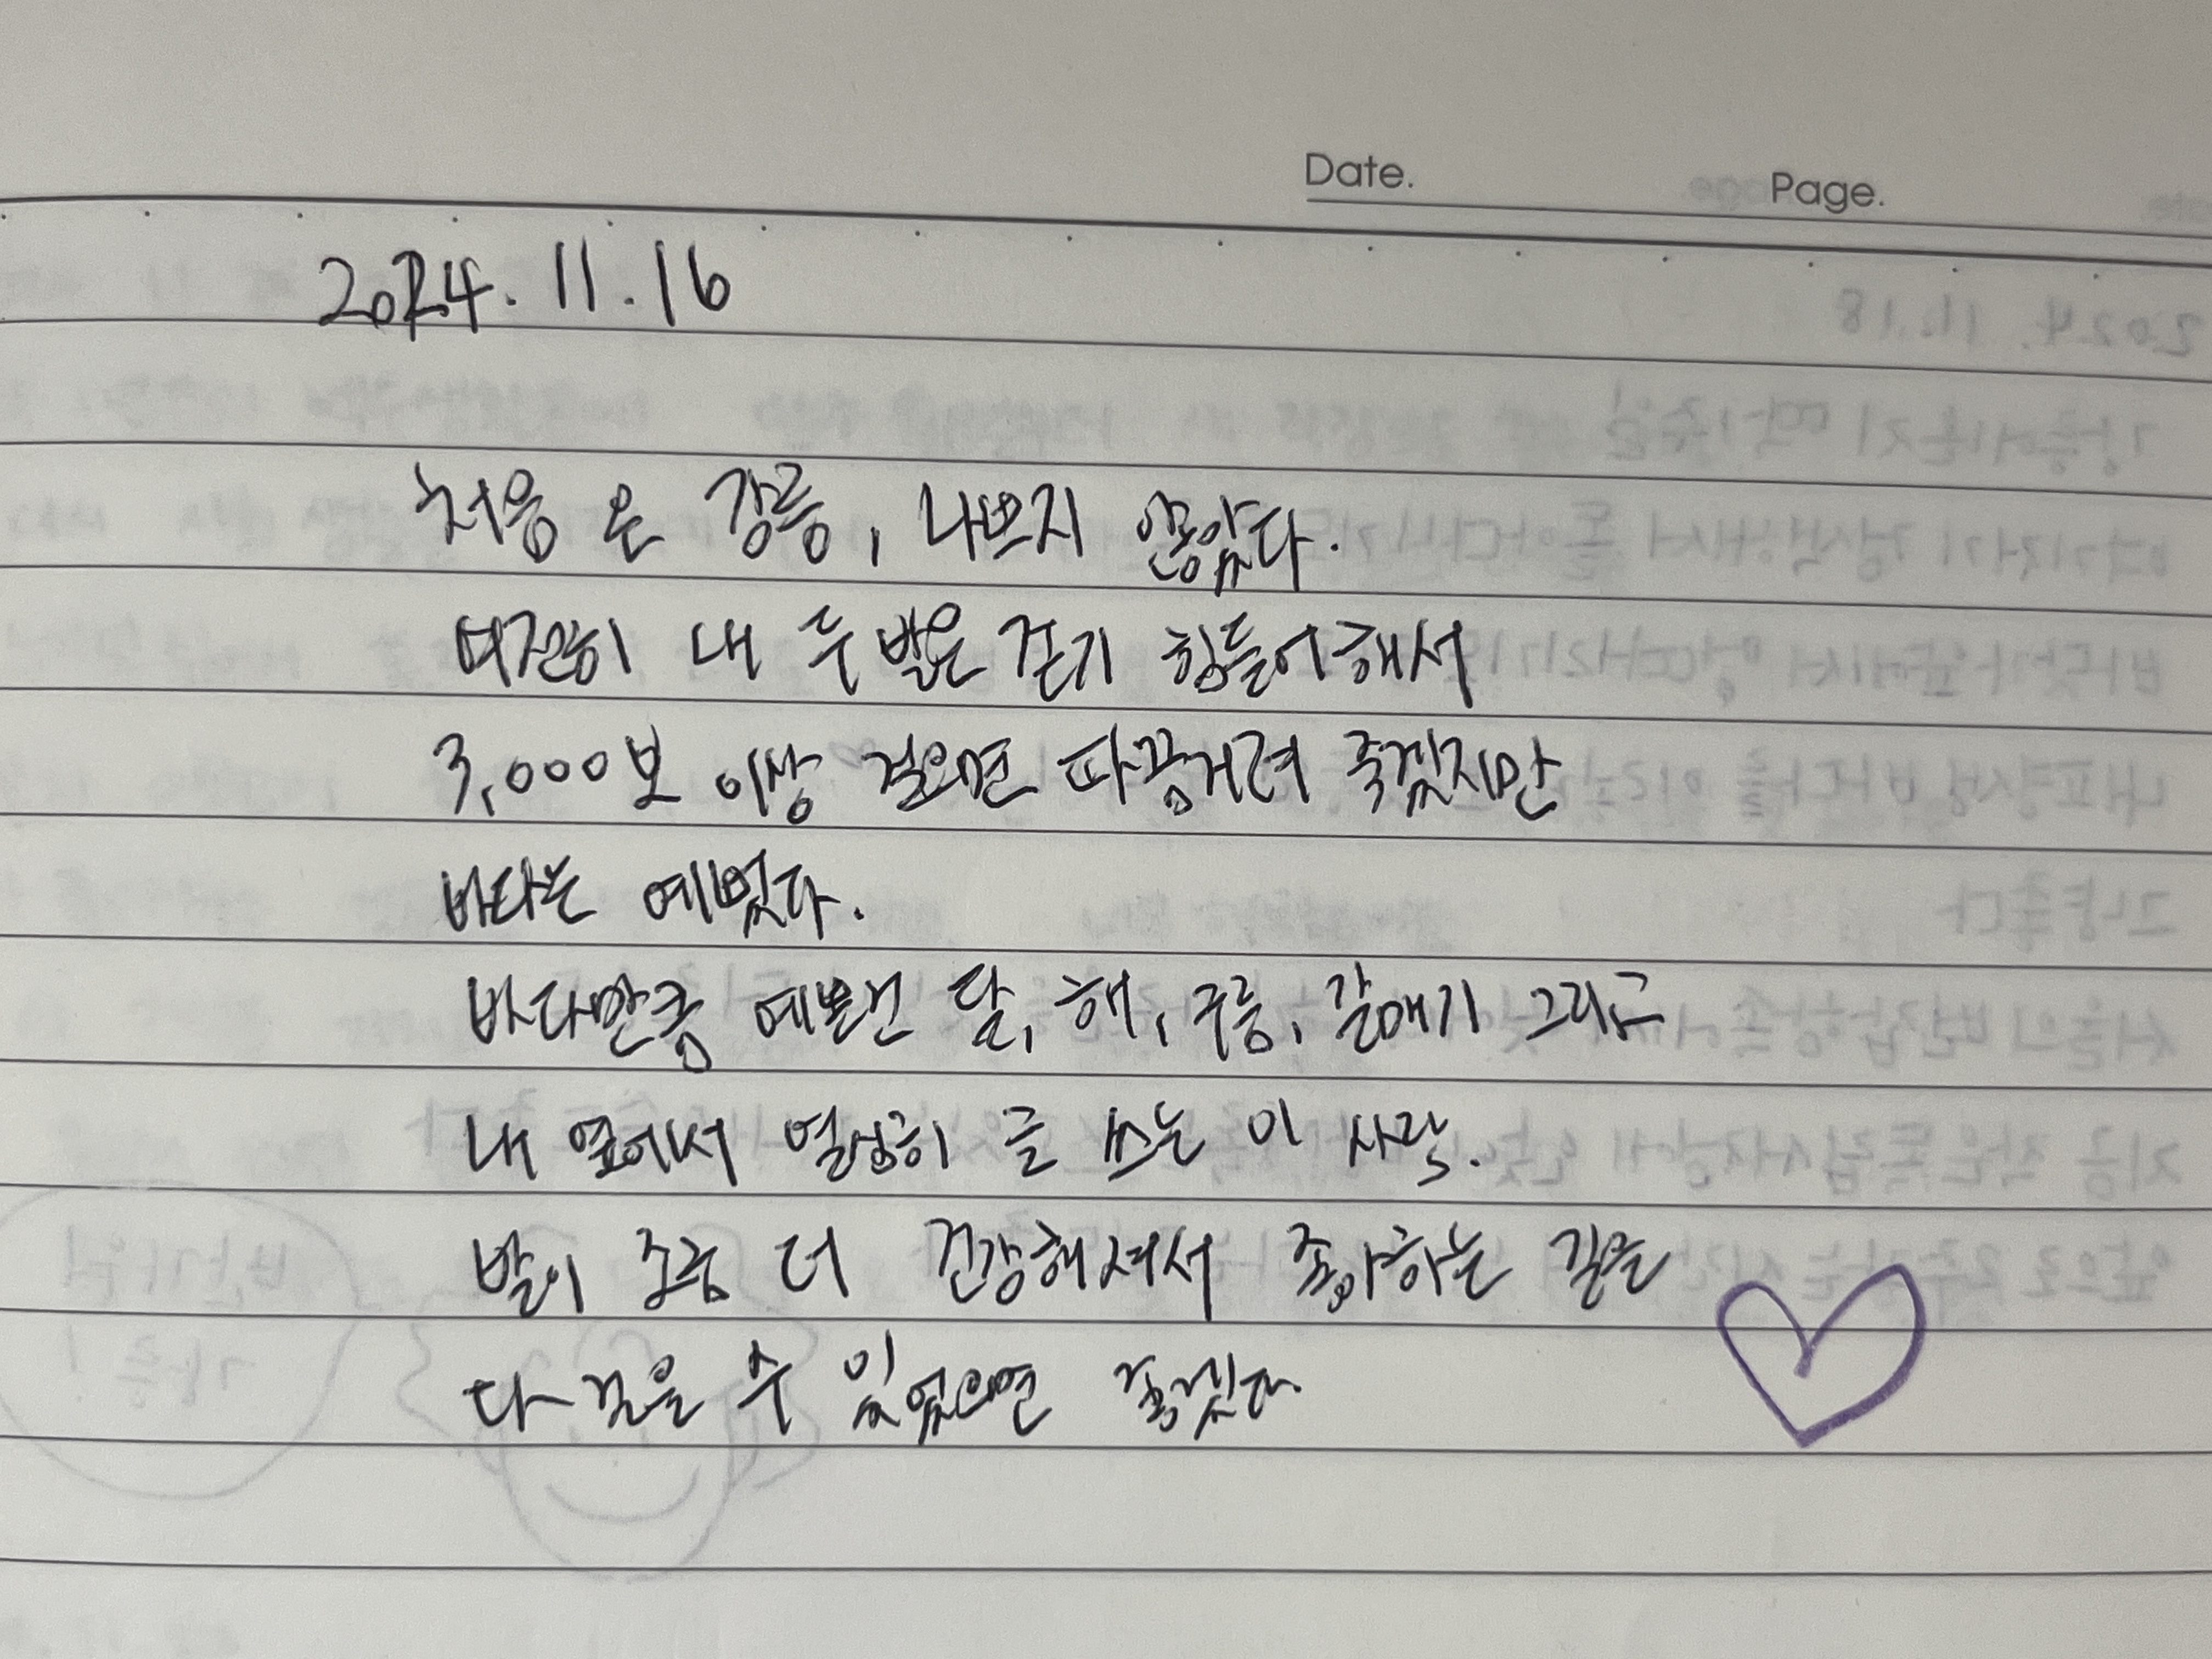 Date. Page.
2024. 11. 16
처음 온 강릉, 나쁘지 않았다.
여전히 내 두 발은 걷기 힘들어해서
3,000보 이상 걸으면 따끔거려 죽겠지만
바다는 예뻤다.
바다만큼 예쁜건 달, 해, 구름, 갈매기 그리고
내 옆에서 열심히 글 쓰는 이 사람.
발이 조금 더 건강해져서 좋아하는 길을
다 걸을 수 있었으면 좋겠다.